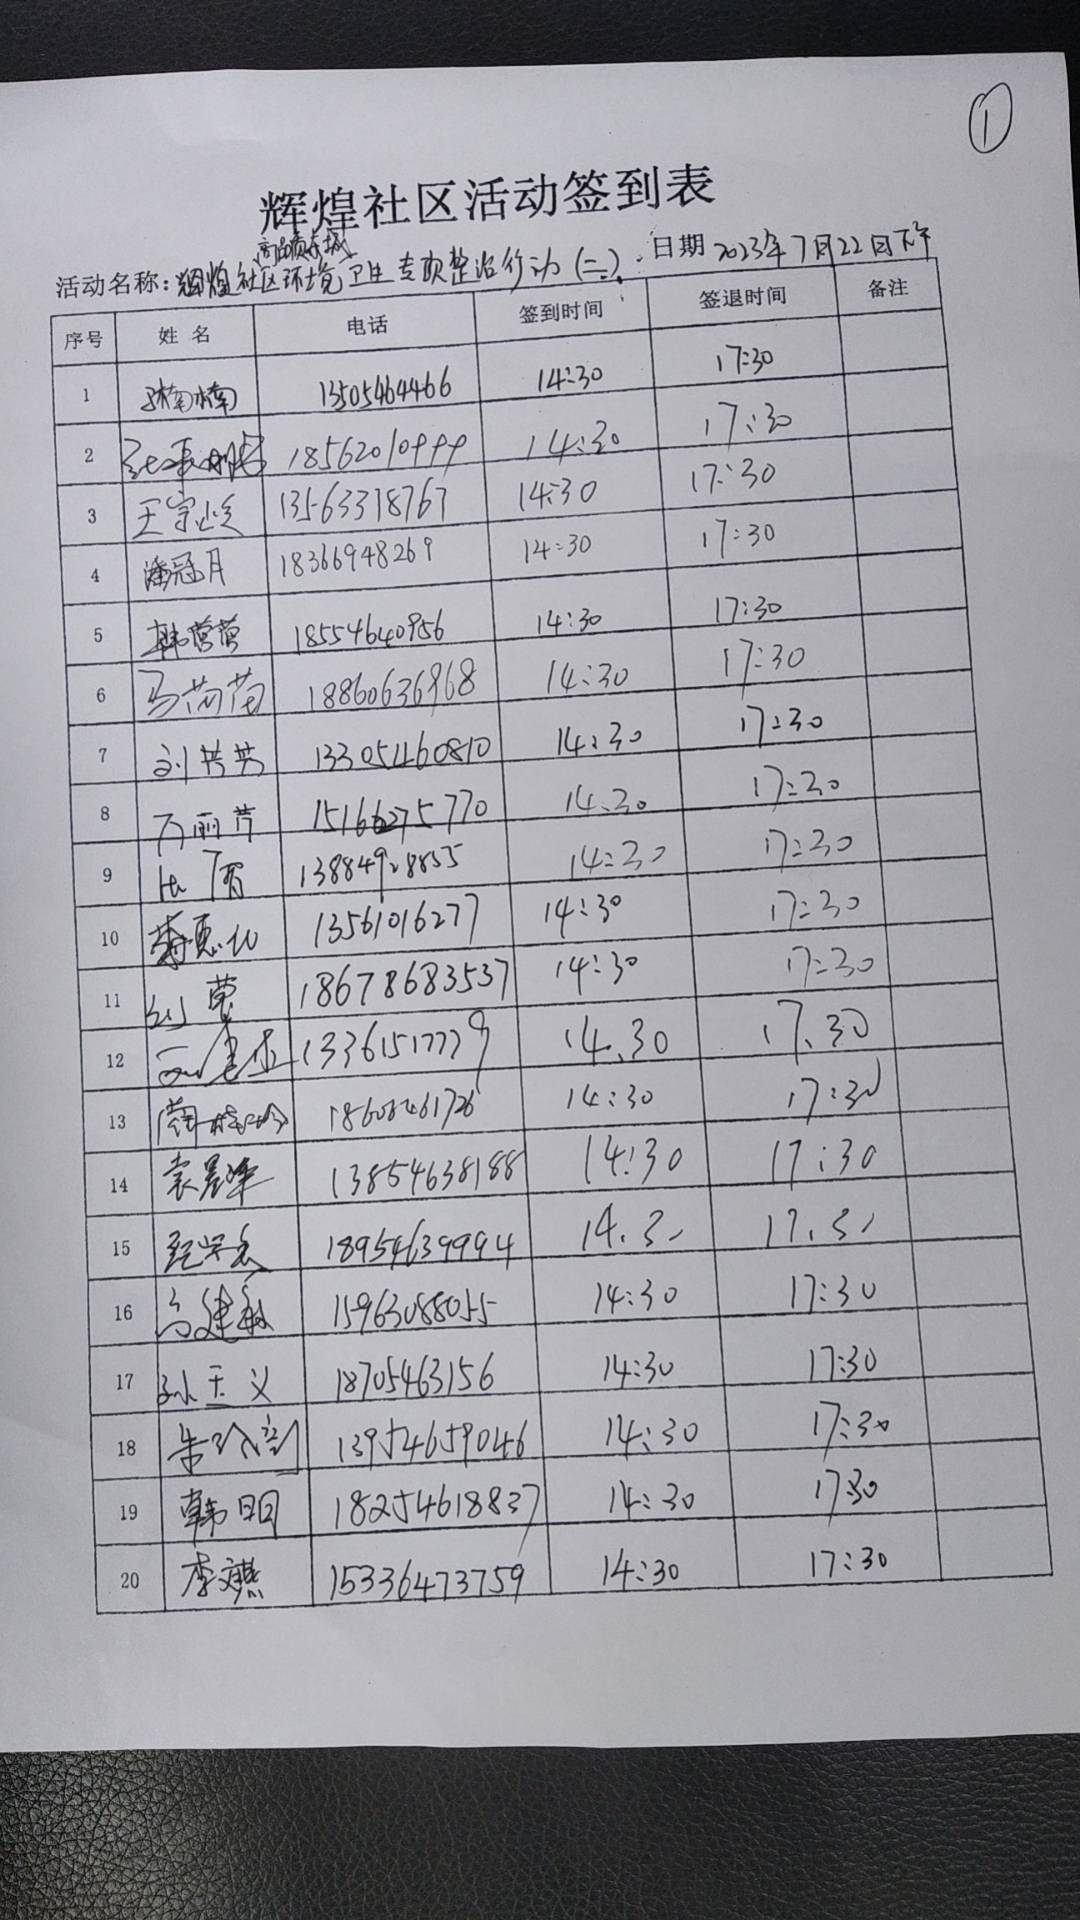 ①
辉煌社区活动签到表
高品质东城
活动名称：辉煌社区环境卫生专项整治行动（二）. 日期 2023年7月22日下午
序号 姓名 电话 签到时间 签退时间 备注
1 楠楠 13505464466 14:30 17:30
2 18562010999 14:30 17:30
3 王宗 13563378767 14:30 17:30
4 潘冠月 18366948269 14:30 17:30
5 韩莺莺 18554640956 14:30 17:30
6 马荷 18860636968 14:30 17:30
7 刘芳芳 13305460810 14:30 17:30
8 万丽芹 15166275770 14:30 17:30
9 13884928855 14:30 17:30
10 13561016277 14:30 17:30
11 18678683537 14:30 17:30
12 14.30 17.30
13 14:30 17:30
14 袁 13854638188 14:30 17:30
15 18954639994 14.30 17.30
16 高建 15963088055 14:30 17:30
17 孙玉义 18705463156 14:30 17:30
18 朱 13954659046 14:30 17:30
19 韩明 18254618837 14:30 17:30
20 李文燕 15336473759 14:30 17:30